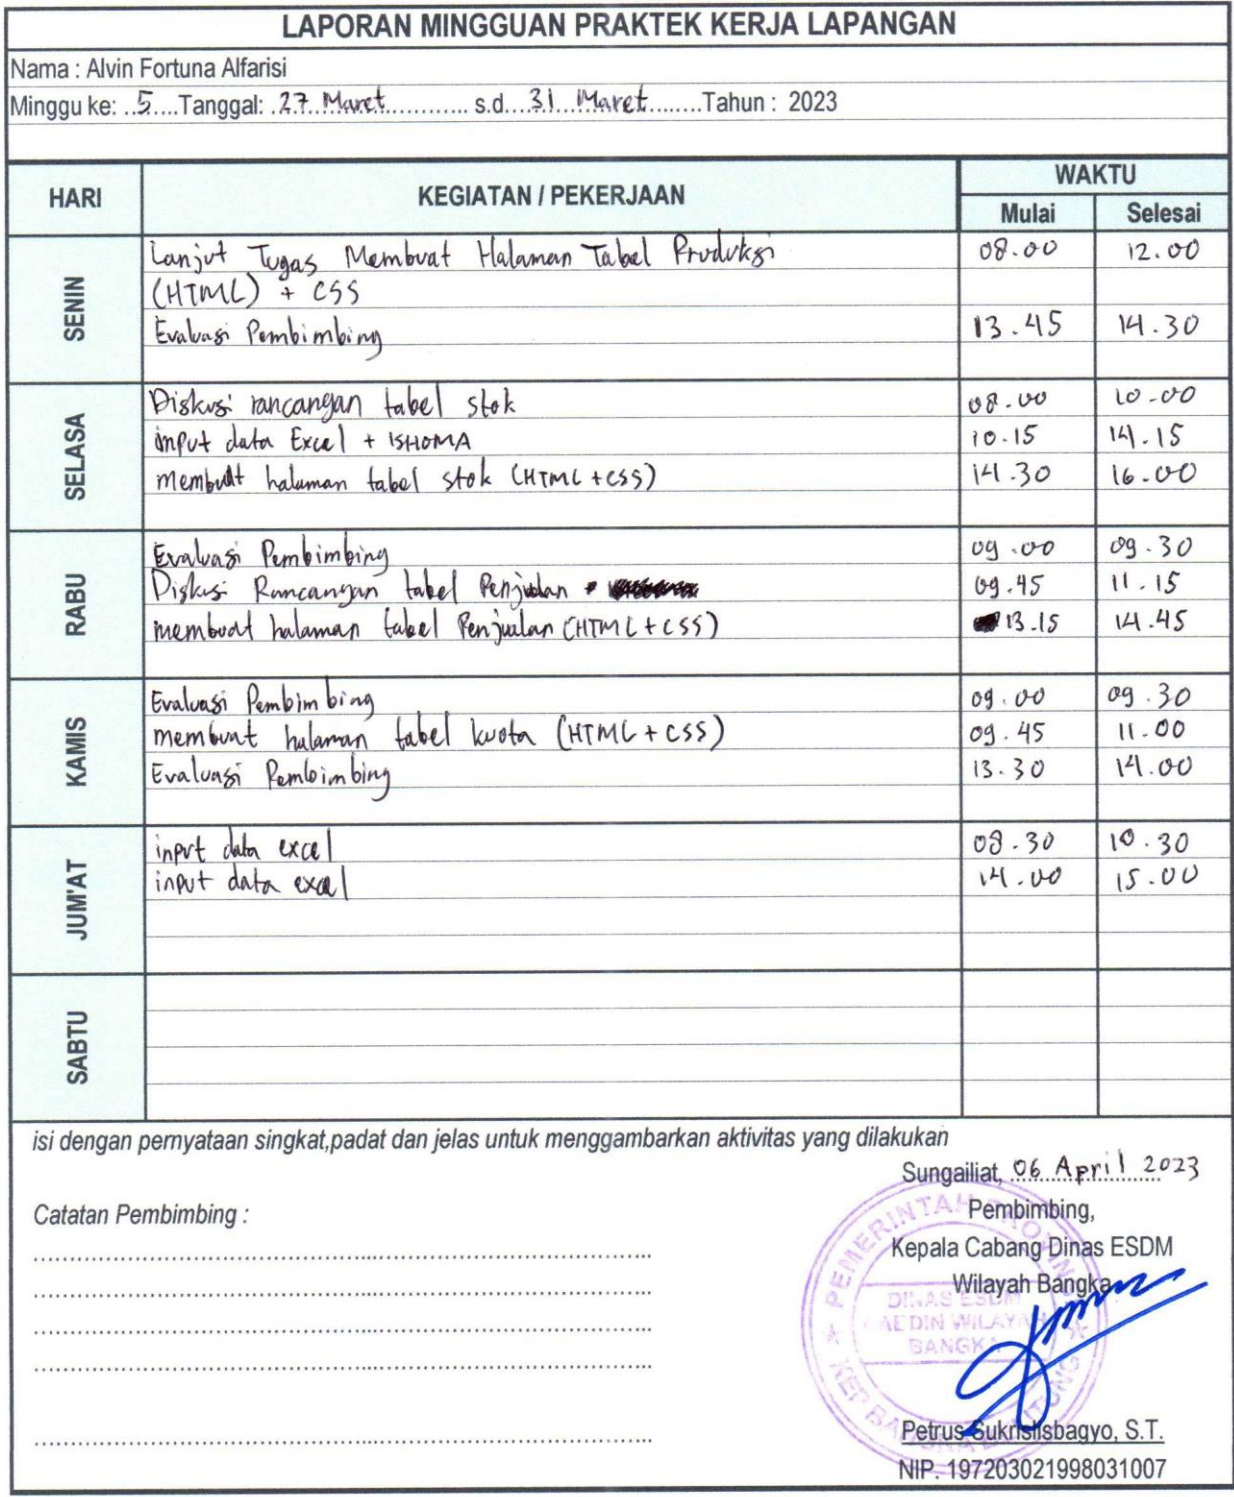 LAPORAN MINGGUAN PRAKTEK KERJA LAPANGAN
Nama : Alvin Fortuna Alfarisi
Minggu ke: ..5.....Tanggal: .27 Maret............ s.d....31...Maret........Tahun : 2023
HARI KEGIATAN / PEKERJAAN WAKTU
Mulai Selesai
SENIN
Lanjut Tugas Membuat Halaman Tabel Produksi 08.00 12.00
(HTML) + CSS
Evaluasi Pembimbing 13.45 14.30
SELASA
Diskusi rancangan tabel stok 08.00 10.00
input data Excel + ISHOMA 10.15 14.15
membuat halaman tabel stok (HTML+CSS) 14.30 16.00
RABU
Evaluasi Pembimbing 09.00 09.30
Diskusi Rancangan tabel Penjualan 09.45 11.15
membuat halaman tabel Penjualan (HTML+CSS) 13.15 14.45
KAMIS
Evaluasi Pembimbing 09.00 09.30
membuat halaman tabel kuota (HTML+CSS) 09.45 11.00
Evaluasi Pembimbing 13.30 14.00
JUM'AT
input data excel 08.30 10.30
input data excel 14.00 15.00
SABTU
isi dengan pernyataan singkat,padat dan jelas untuk menggambarkan aktivitas yang dilakukan
Sungailiat, 06 April 2023
Catatan Pembimbing :
Pembimbing,
Kepala Cabang Dinas ESDM
Wilayah Bangka
PEMERINTAH PROVINSI
DINAS ESDM
WILAYAH
BANGKA
KEP BANGKA BELITUNG
Petrus Sukrislisbagyo, S.T.
NIP. 197203021998031007